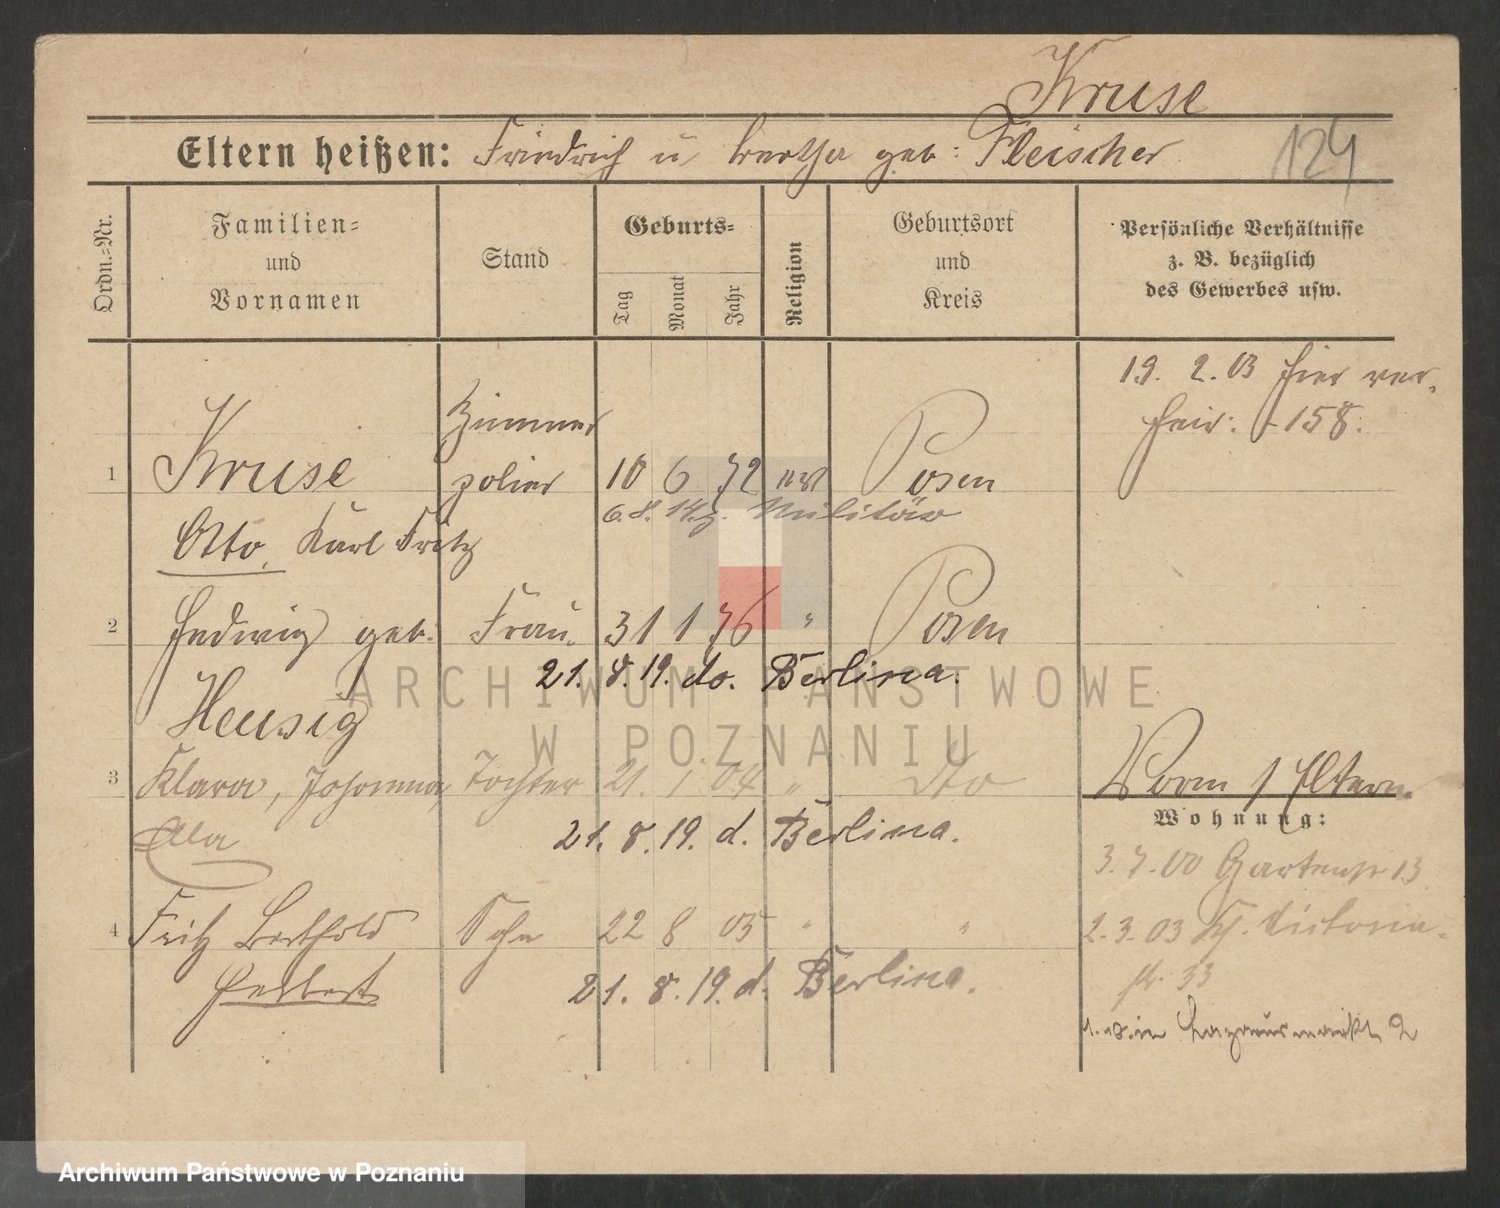 Kruse
Eltern heißen: Friedrich u Bertha geb: Fleischer
124
Ordn.-Nr.
Familien-
und
Vornamen
Stand
Geburts-
Tag
Monat
Jahr
Religion
Geburtsort
und
Kreis
Persönliche Verhältnisse
z. B. bezüglich
des Gewerbes usw.
19. 2. 03 hier ver-
heir: 158.
Zimmer
1 Kruse polier 10 6 72 Posen
6. 8. 14. z. Militär
Otto, Karl Fritz
2 Hedwig geb: Frau. 31 1 76 " Posen
21. 8. 19. do. Berlina.
Heusig
3 Klara, Johanna, Tochter 21. 1 04 " dto
Ella
21. 8. 19. d. Berlina.
4 Fritz Berthold Sohn 22 8 05 " "
Herbert
21. 8. 19. d. Berlina.
Vorm / Eltern
Wohnung:
3. 7. 00 Gartenstr 13
2. 3. 03 Victoria-
str. 33
Lazarusmarkt 2
ARCHIWUM PAŃSTWOWE
W POZNANIU
Archiwum Państwowe w Poznaniu